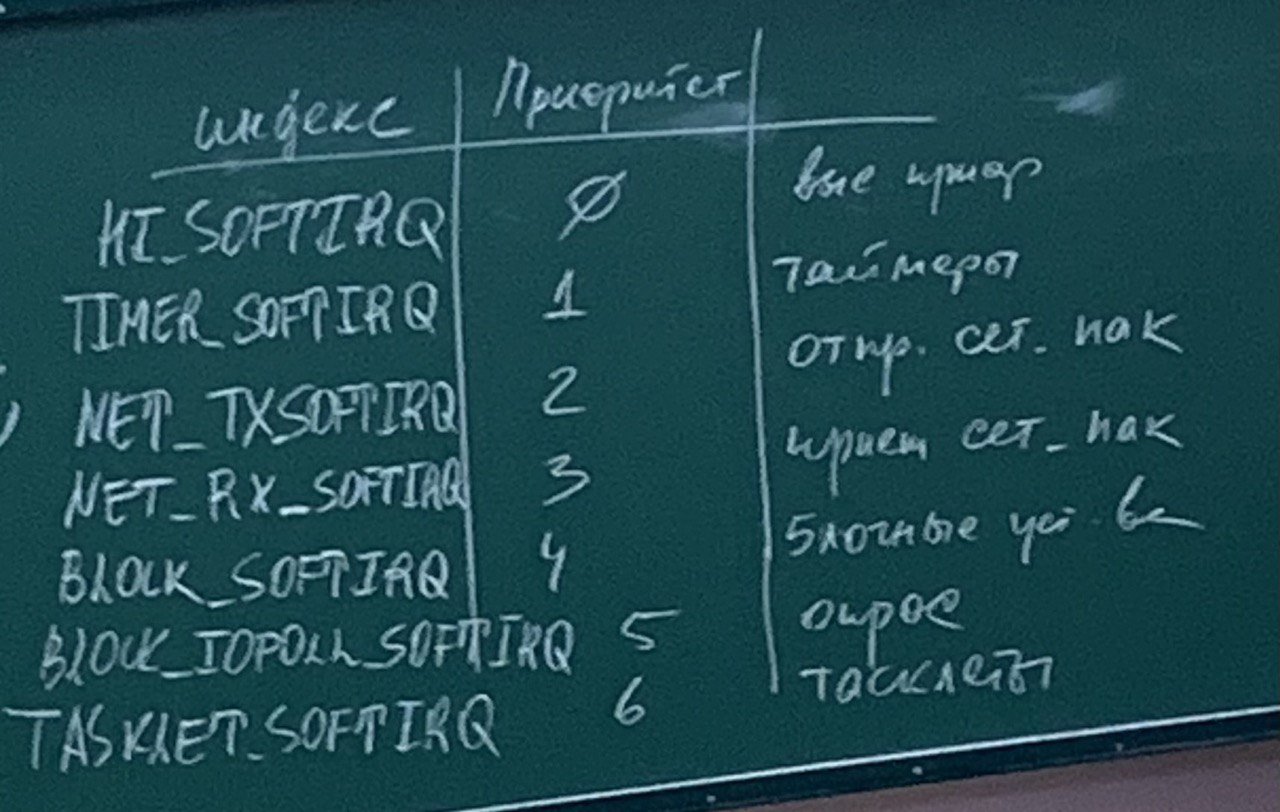 индекс Приоритет
HI_SOFTIRQ 0 выс приор
TIMER_SOFTIRQ 1 таймеры
NET_TXSOFTIRQ 2 отпр. сет_пак
NET_RX_SOFTIRQ 3 прием сет_пак
BLOCK_SOFTIRQ 4 блочные уст-ва
BLOCK_IOPOLL_SOFTIRQ 5 опрос
TASKLET_SOFTIRQ 6 тасклеты